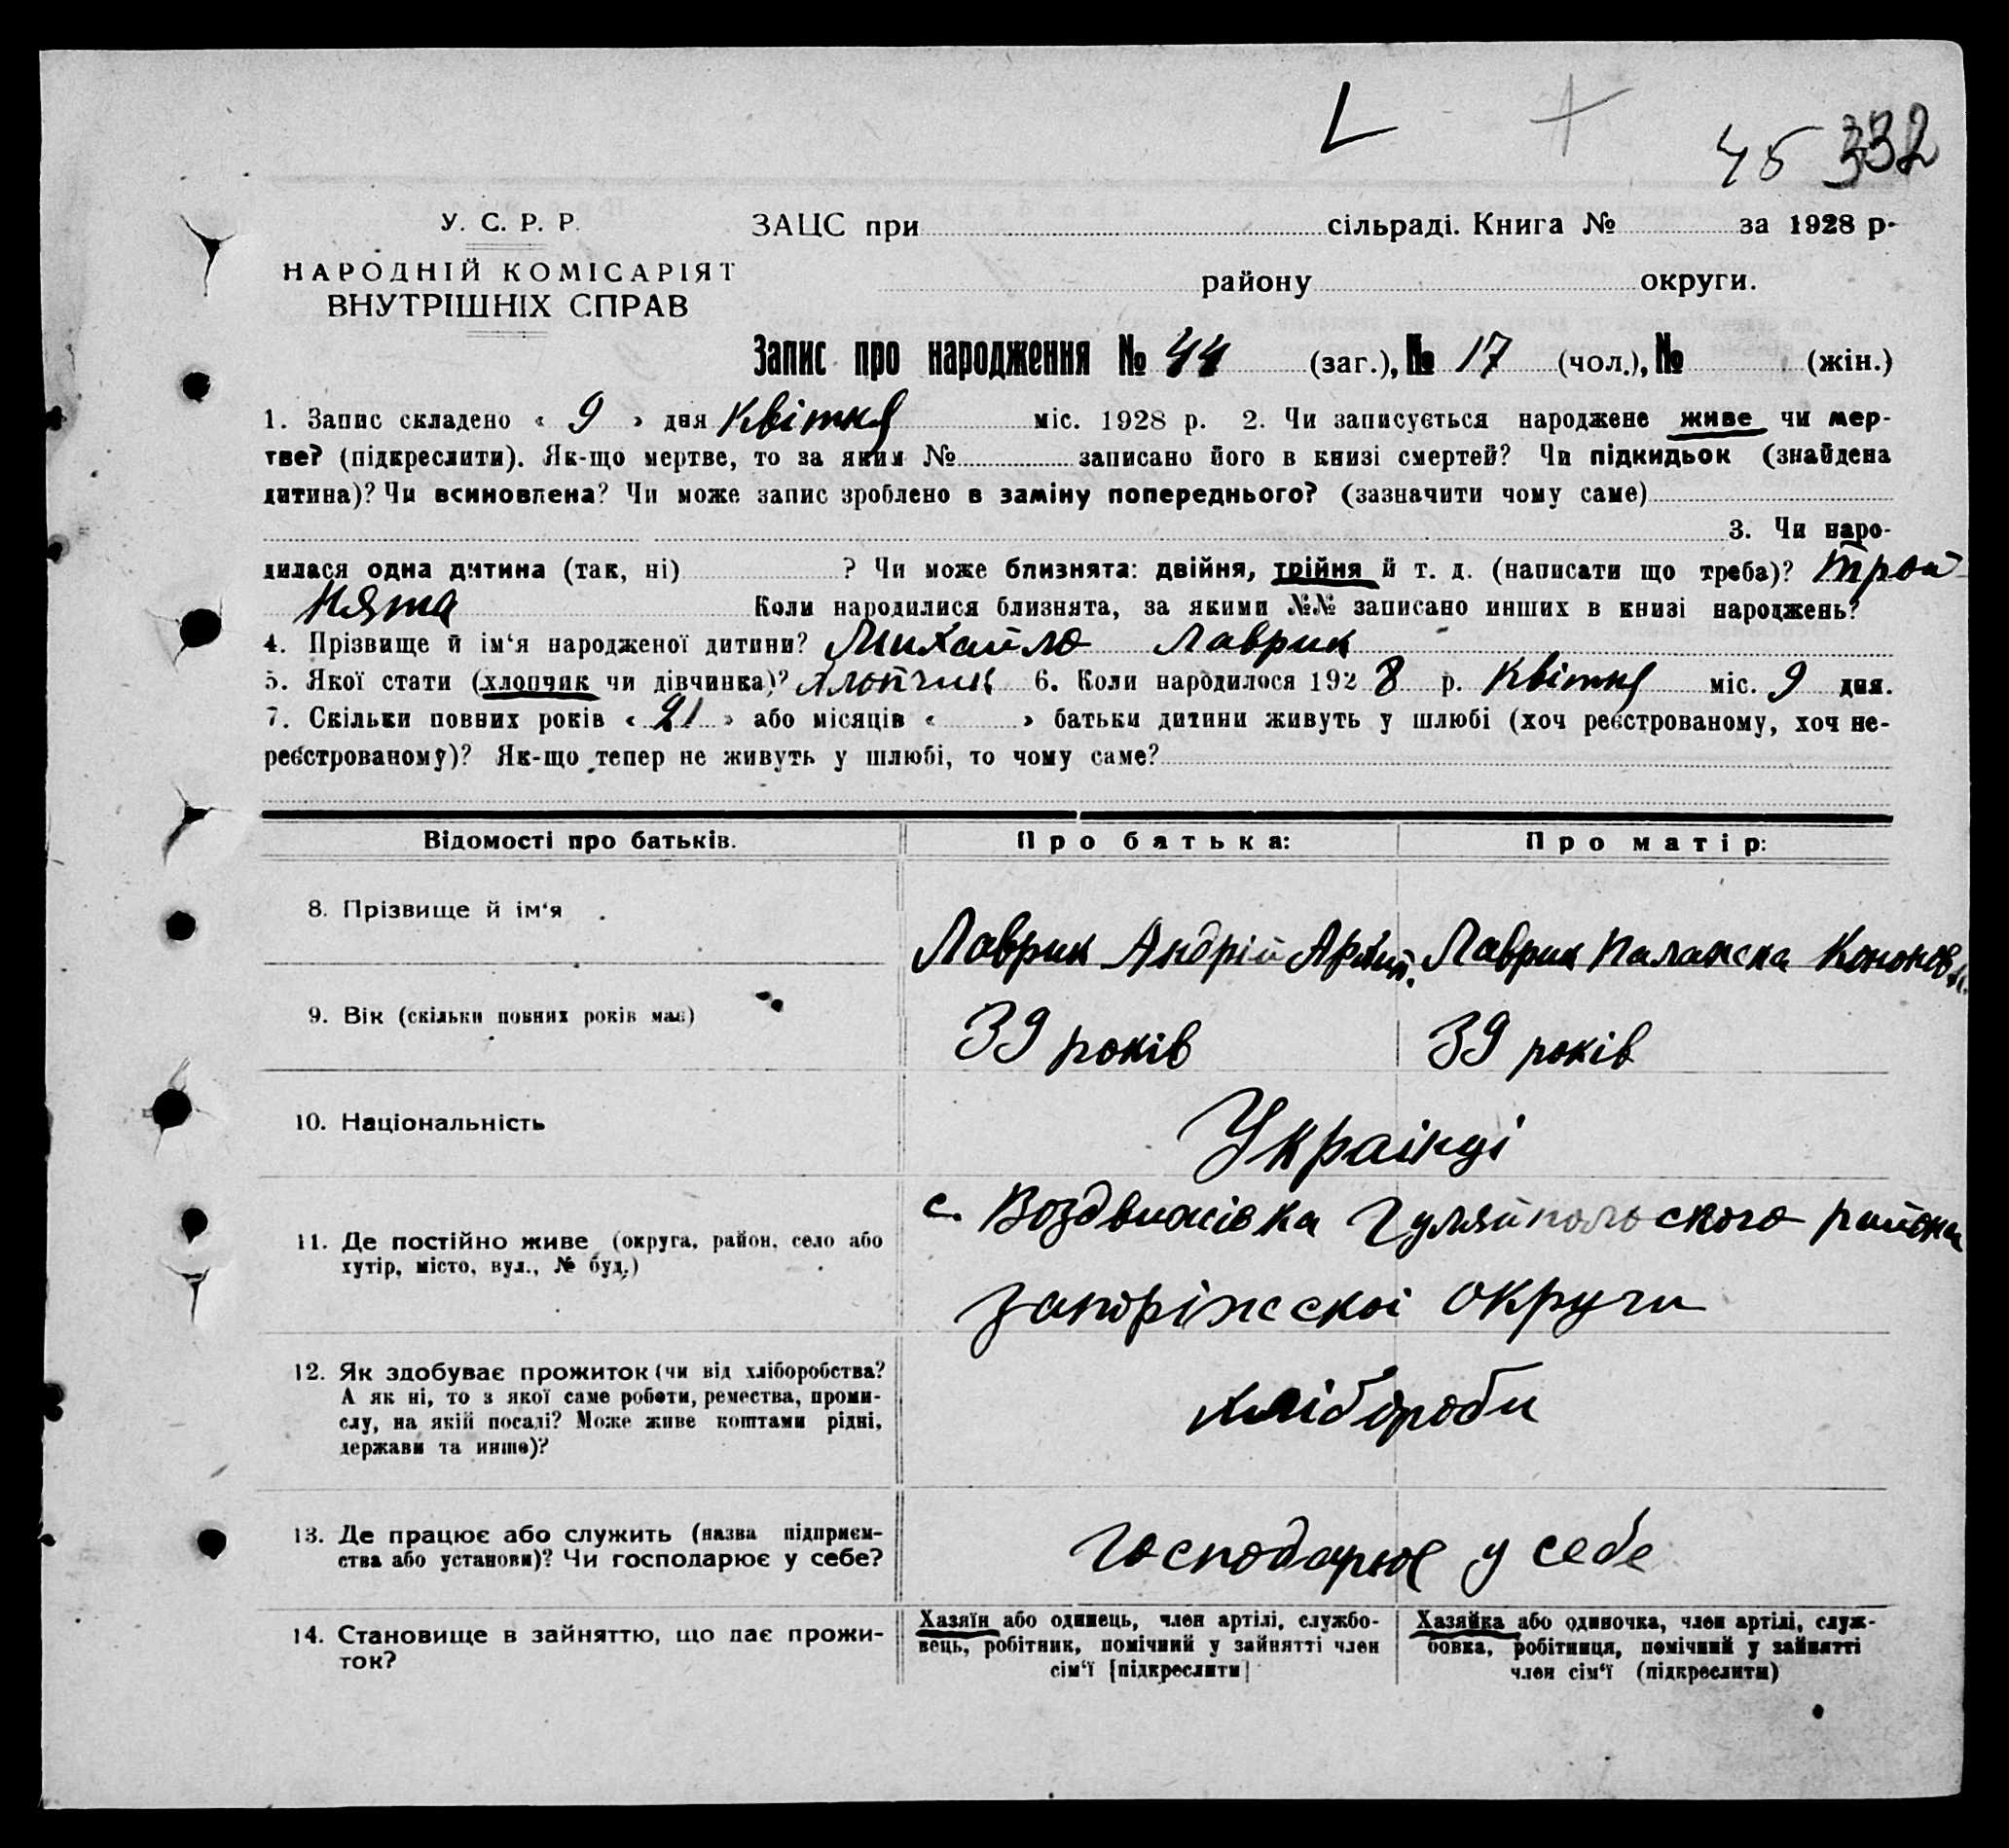 45 332
У. С. Р. Р.
НАРОДНІЙ КОМІСАРІЯТ
ВНУТРІШНІХ СПРАВ
ЗАЦС при сільраді. Книга № за 1928 р.
району округи.
Запис про народження № 44 (заг.), № 17 (чол.), № (жін.)
1. Запис складено « 9 » дня Квітня міс. 1928 р. 2. Чи записується народжене живе чи мер-
тве? (підкреслити). Як-що мертве, то за яким № записано його в книзі смертей? Чи підкидьок (знайдена
дитина)? Чи всиновлена? Чи може запис зроблено в заміну попереднього? (зазначити чому саме)
3. Чи наро-
дилася одна дитина (так, ні) ? Чи може близнята: двійня, трійня й т. д. (написати що треба)? трой-
нята Коли народилися близнята, за якими №№ записано инших в книзі народжень?
4. Прізвище й ім‘я народженої дитини? Михайло Лаврик
5. Якої стати (хлопчик чи дівчинка)? хлопчик 6. Коли народилося 1928 р. Квітня міс. 9 дня.
7. Скільки повних років « 21 » або місяців « » батьки дитини живуть у шлюбі (хоч реєстрованому, хоч не-
реєстрованому)? Як-що тепер не живуть у шлюбі, то чому саме?
Відомості про батьків. Про батька: Про матір:
8. Прізвище й ім‘я
Лаврик Андрій Лаврик Палажка Кононов.
9. Вік (скільки повних років має)
39 років 39 років
10. Національність
Украінці
11. Де постійно живе (округа, район, село або
хутір, місто, вул., № буд.)
с. Воздвижівка Гуляйпольского района
запоріжскоі округи
12. Як здобуває прожиток (чи від хліборобства?
А як ні, то з якої саме роботи, ремества, проми-
слу, на якій посаді? Може живе коштами рідні,
держави та инше)?
хлібороби
13. Де працює або служить (назва підприєм-
ства або установи)? Чи господарює у себе?
господарює у себе
14. Становище в зайняттю, що дає прожи-
ток?
Хазяїн або одинець, член артілі, службо-
вець, робітник, помічний у зайнятті член
сім‘ї [підкреслити]
Хазяйка або одиночка, член артілі, служ-
бовка, робітниця, помічний у зайнятті
член сім‘ї (підкреслити)